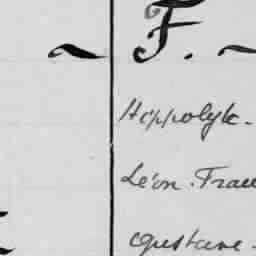 F.
Hippolyte.
Léon. Fran
Gustave.